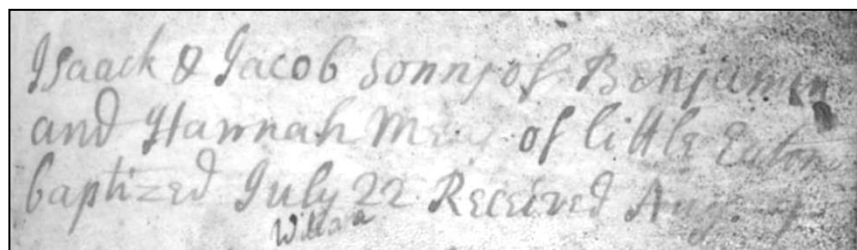 Isaack & Jacob Sonns of Benjamin
and Hannah of little Eaton
baptized July 22 Received Aug.